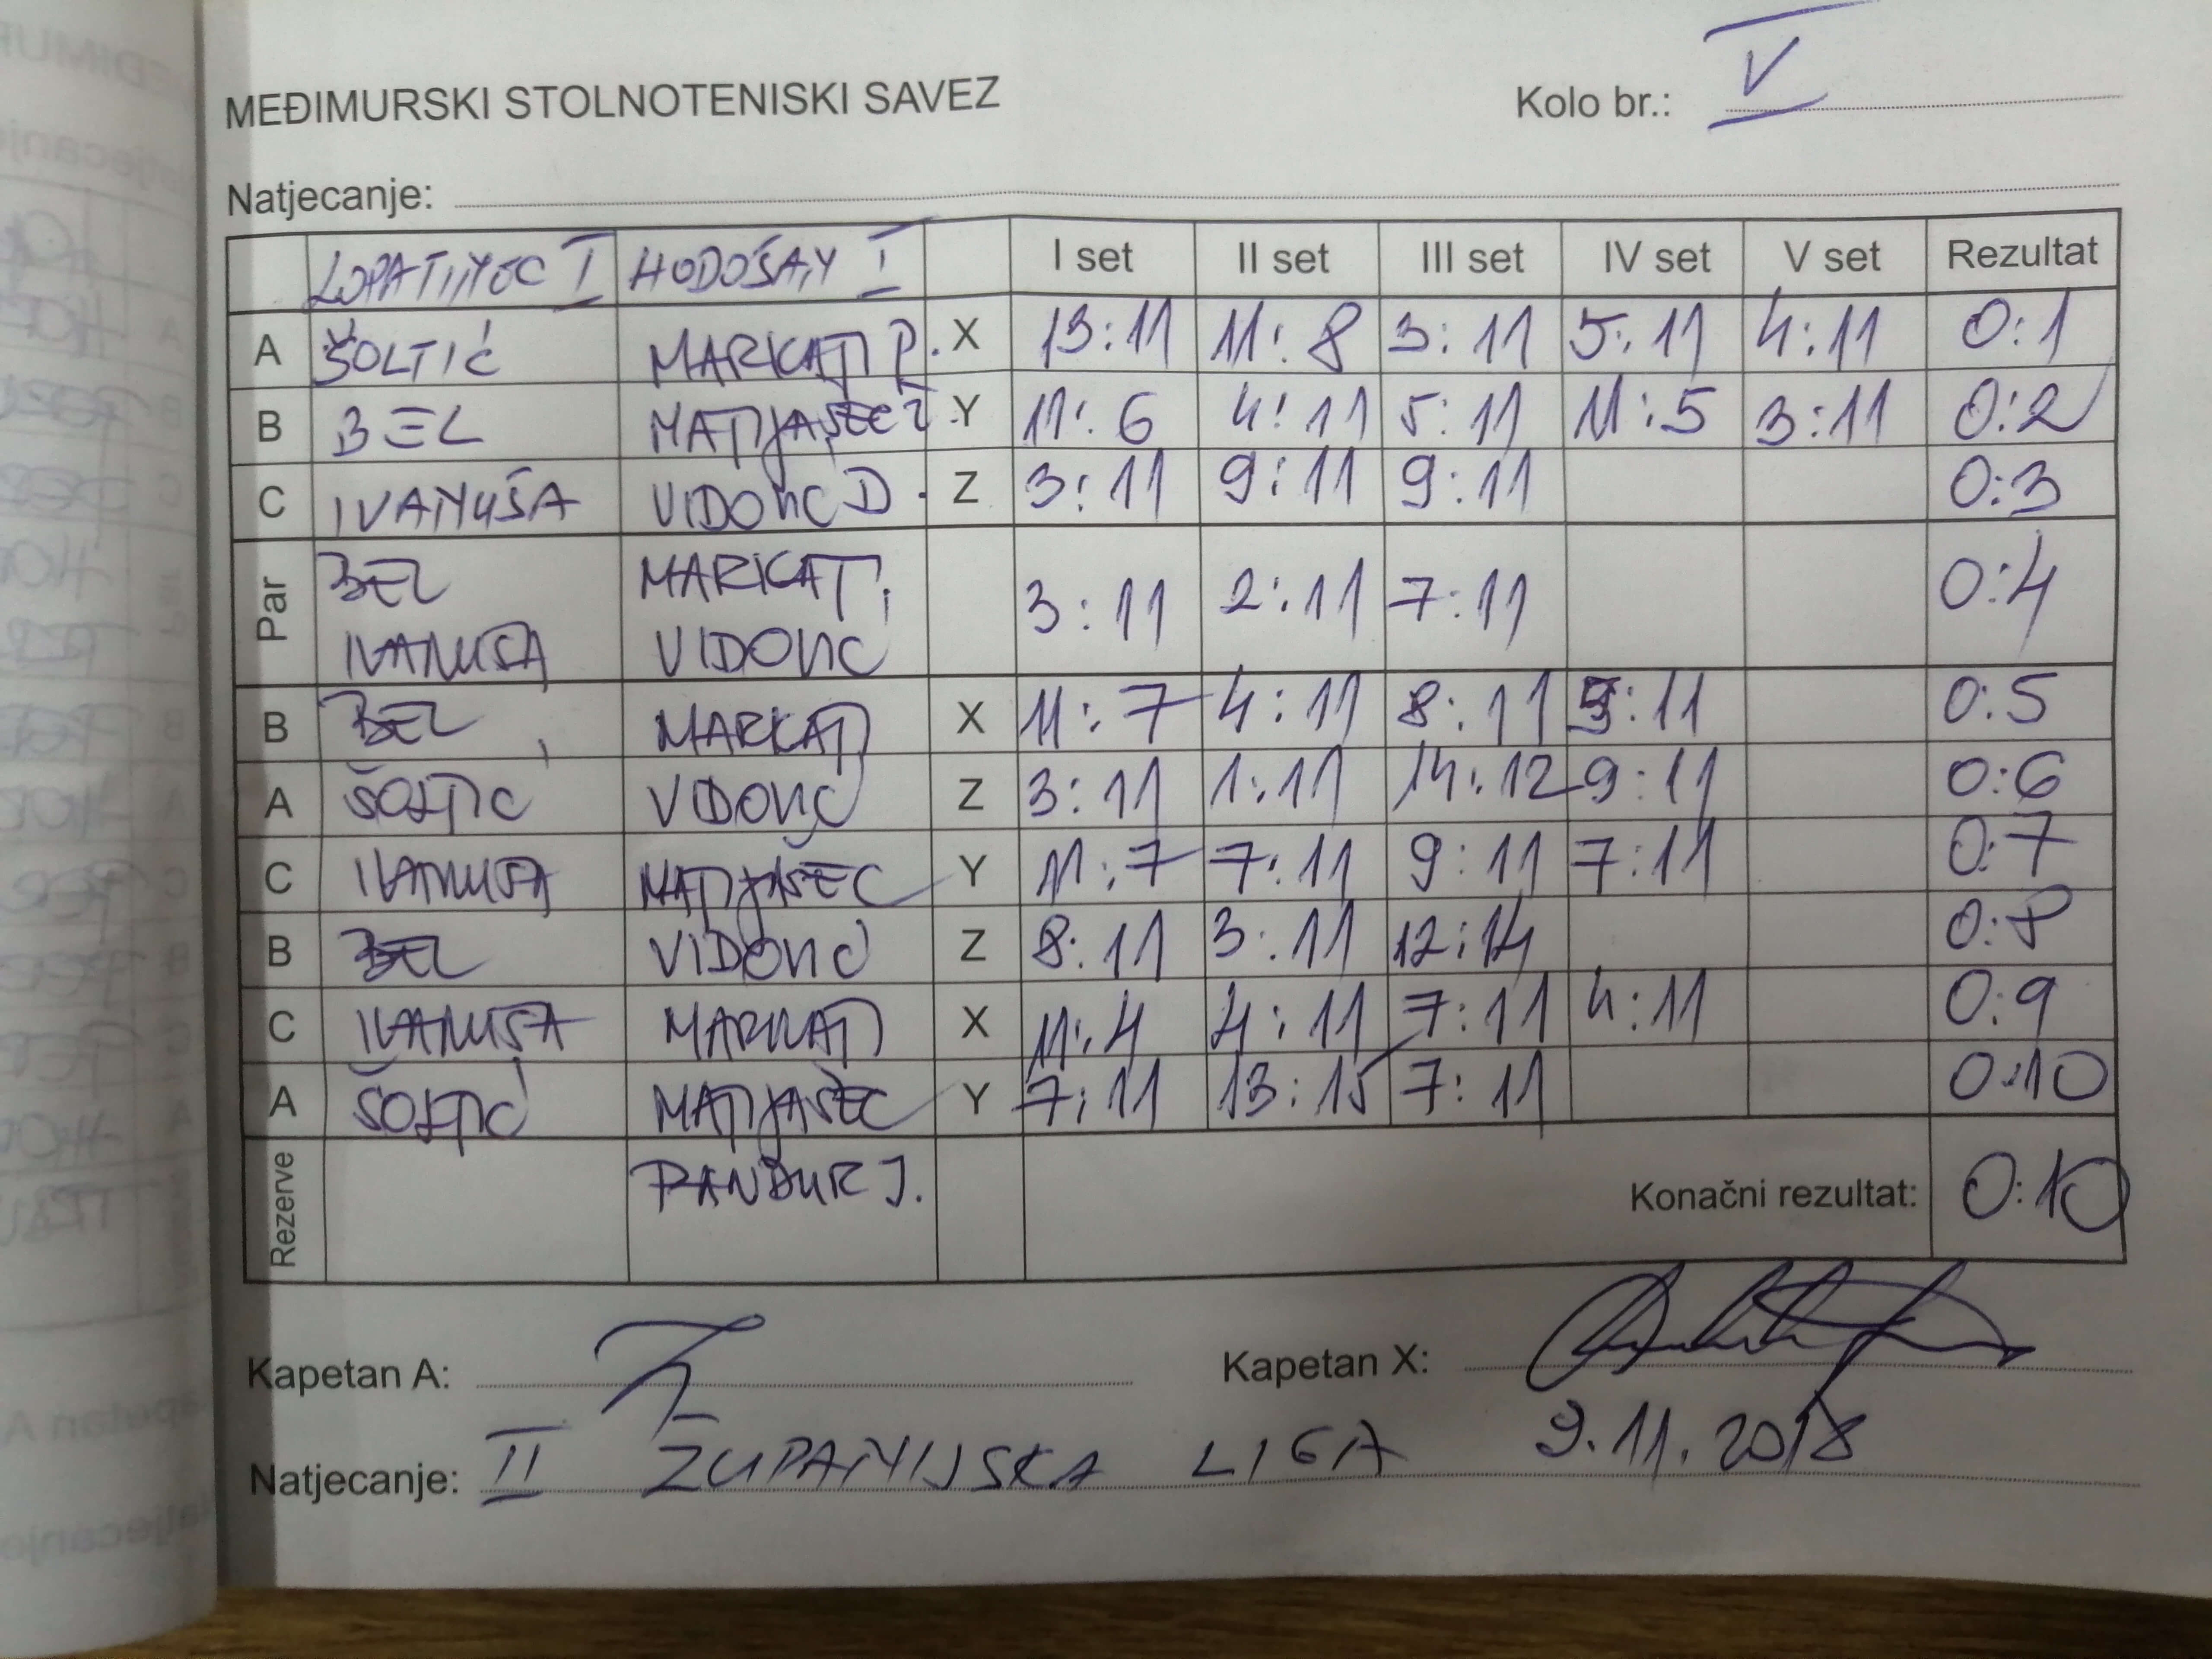 MEĐIMURSKI STOLNOTENISKI SAVEZ Kolo br.: V
Natjecanje:
LOPATINEC I HODOŠAN I I set II set III set IV set V set Rezultat
A ŠOLTIĆ MARKATI P. X 13:11 11:8 3:11 5:11 4:11 0:1
B BEL MATIJAŠEC Ž Y 11:6 4:11 5:11 11:5 3:11 0:2
C IVANUŠA VIDOVIĆ D. Z 3:11 9:11 9:11 0:3
Par BEL MARKATI 3:11 2:11 7:11 0:4
IVANUŠA VIDOVIĆ
B BEL MARKATI X 11:7 4:11 8:11 :11 0:5
A ŠOLTIĆ VIDOVIĆ Z 3:11 1:11 14:12 9:11 0:6
C IVANUŠA MATIJAŠEC Y 11:7 7:11 9:11 7:11 0:7
B BEL VIDOVIĆ Z 8:11 3:11 12:14 0:8
C IVANUŠA MARKATI X 11:4 4:11 7:11 4:11 0:9
A ŠOLTIĆ MATIJAŠEC Y 7:11 13:15 7:11 0:10
Rezerve PANDUR J. Konačni rezultat: 0:10
Kapetan A: Kapetan X:
Natjecanje: II ŽUPANIJSKA LIGA 9.11.2018